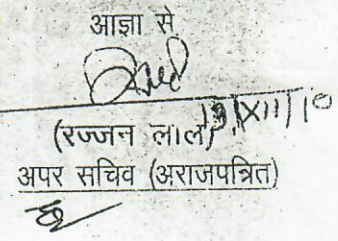 आज्ञा से
(रज्जन लाल) 13/XII/10
अपर सचिव (अराजपत्रित)